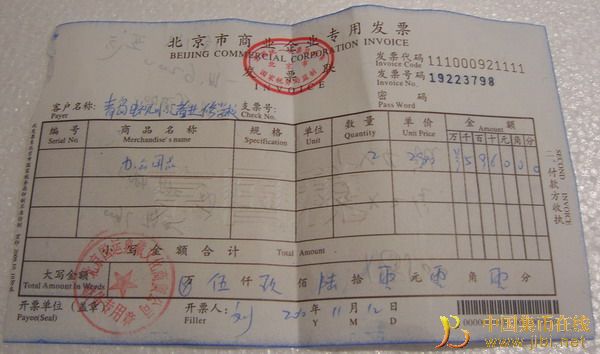 北京市商业企业专用发票
BEIJING COMMERCIAL CORPORATION INVOICE
发票联
INVOICE
国家税务总局监制
发票代码 111000921111
Invoice Code
发票号码 19223798
Invoice No.
密 码
Pass Word
客户名称:
Payer
支票号:
Check No.
编号 商品名称 规格 单位 数量 单价 金额
No. Merchandise's name Specification Unit Quantity Unit Price Amount
万 千 百 十 元 角 分
办公用品 2 2980 ¥ 5 9 6 0 0 0
小写金额合计 Total Amount
大写金额 伍 仟 玖 佰 陆 拾 零 元 零 角 零 分
Total Amount in Words
开票单位(盖章) 开票人: 刘 11 月 12 日
Payee(Seal) Filler Y M D
二 付款方收执
SECOND INVOICE
中国集币在线
www.jibi.net